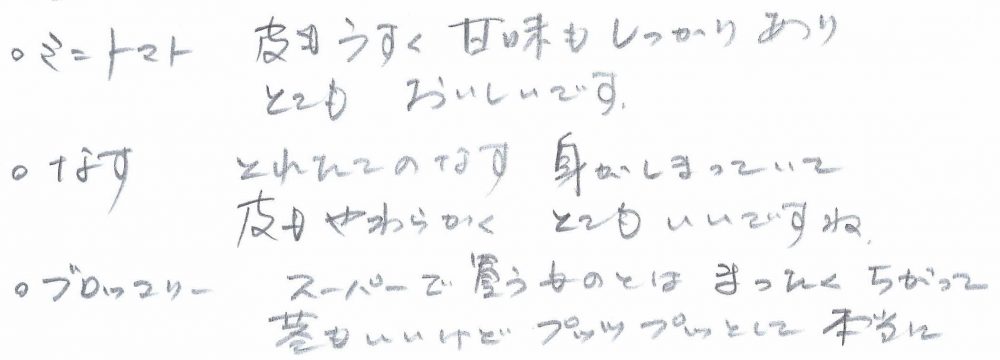 ○ミニトマト 皮もうすく 甘味もしっかりあり
とても おいしいです。
○なす とれたてのなす 身がしまっていて
皮もやわらかく とてもいいですね。
○ブロッコリー スーパーで買うものとは まったくちがって
茎もいいけど プッツプッとして 本当に